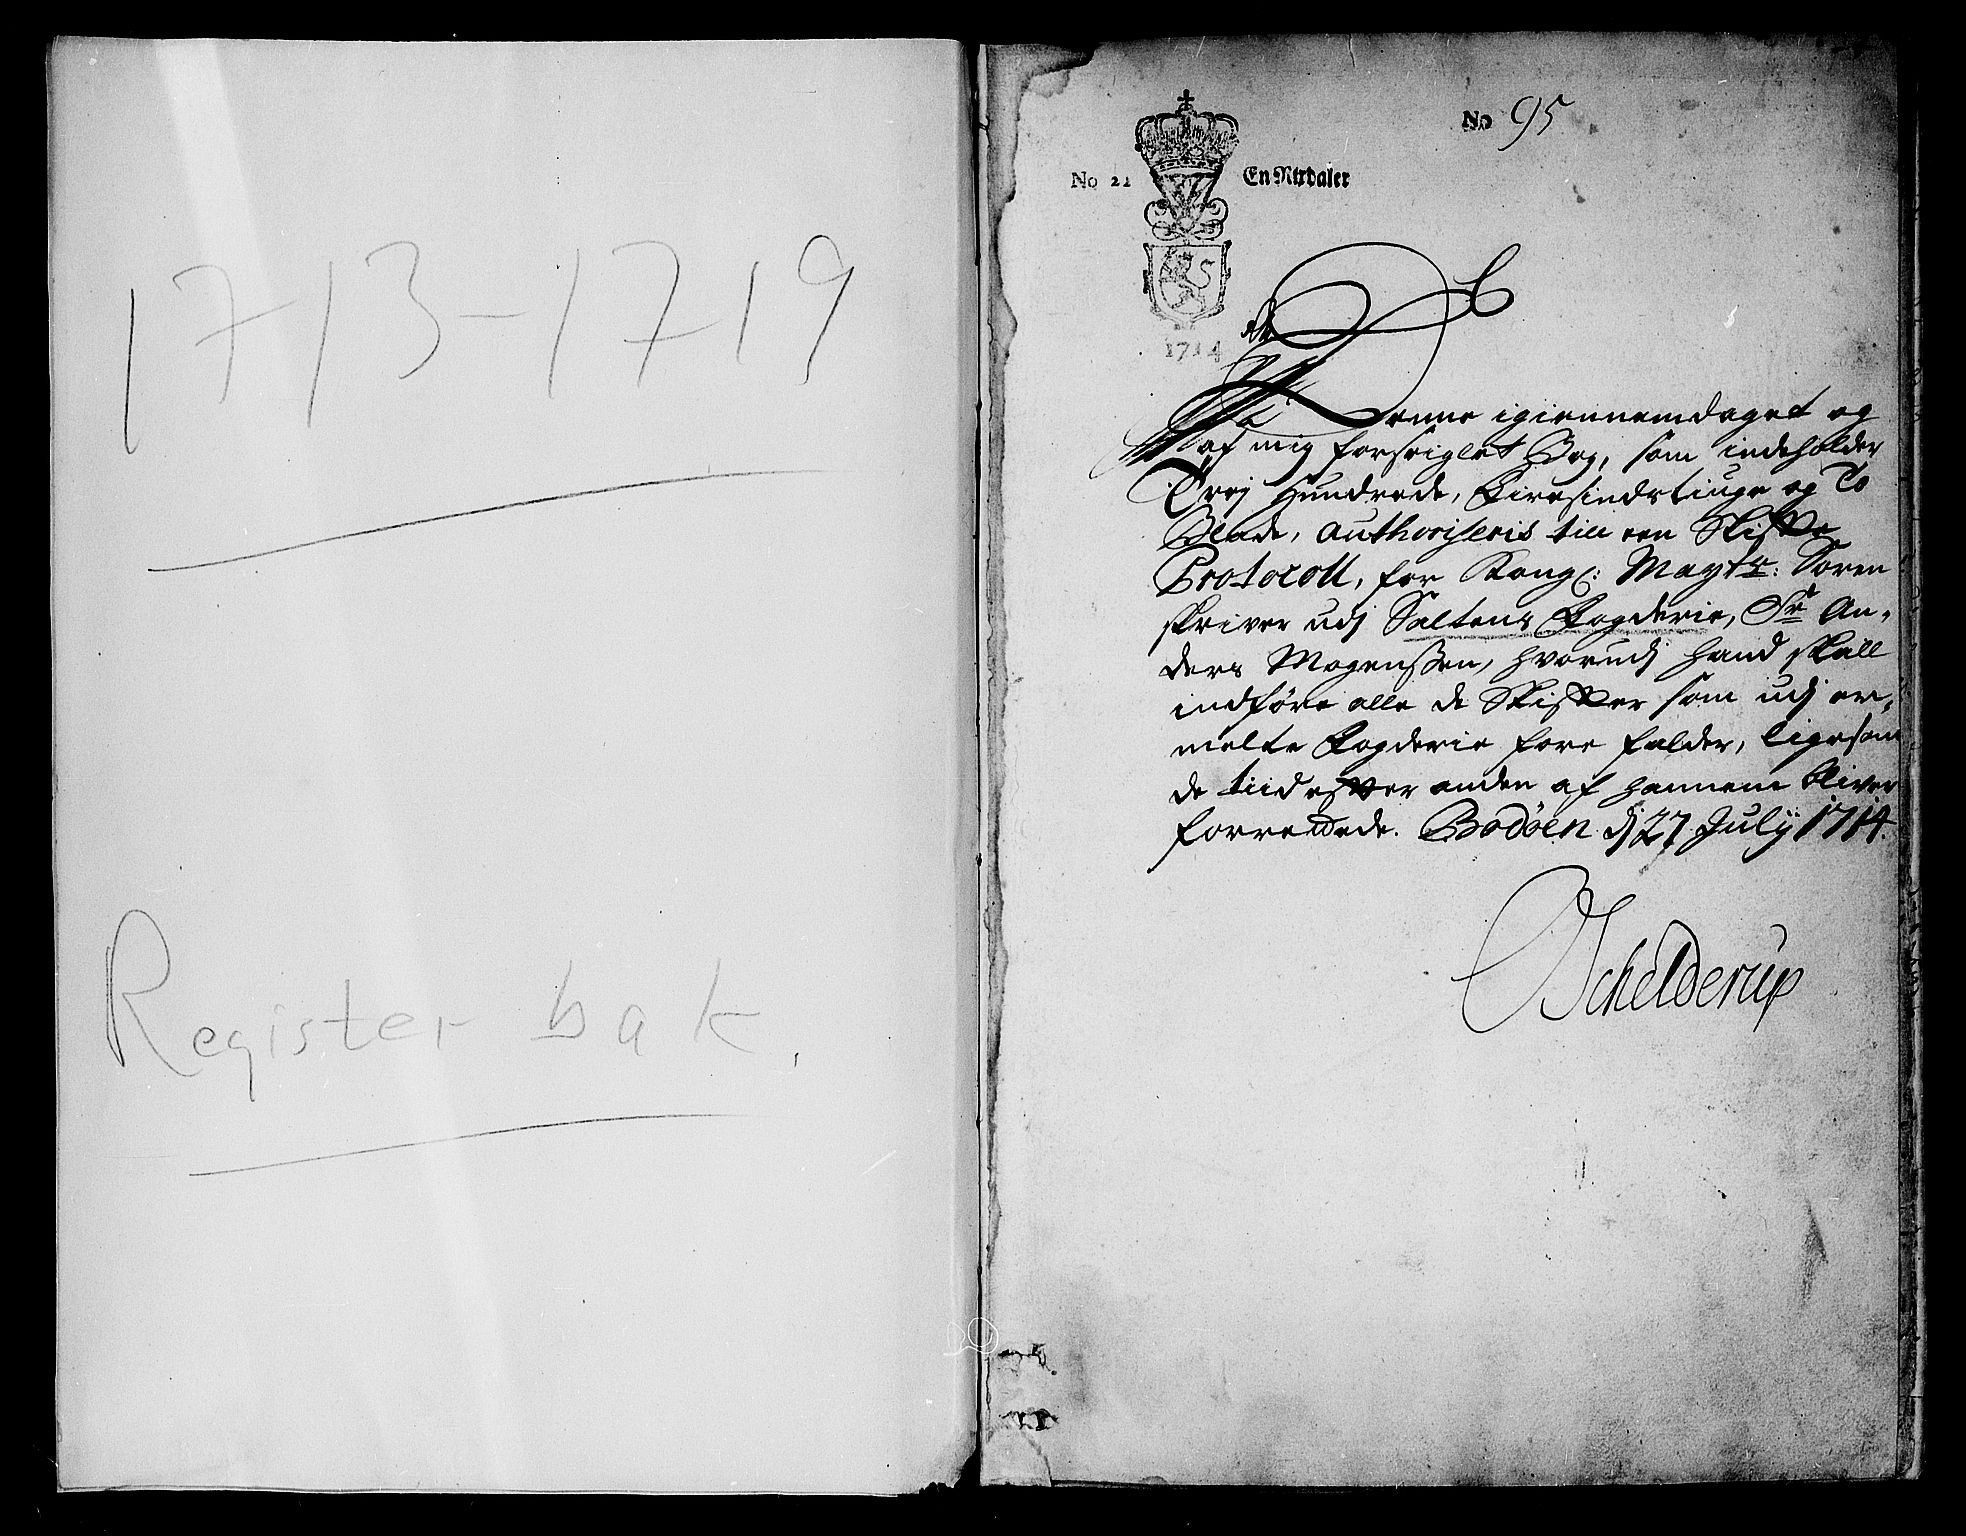 1713-1719
Register bak.
No 95
No 21 En Rixdaler
1714
Denne igiennemdraget og
af mig forseiglet Bog, som indeholder
Trej Hundrede, Firesindstiuge og To
Blade, authoriseris till een Skifte
Protocoll, for Kongl: Mayts: Soren
skriver udj Saltens Fogderie, Sr An-
ders Mogenssen, hvorudj hand skall
indføre alle de Skifter som udj er-
melte Fogderie fore falder, ligesom
de tiid efter anden af hannem bliver
forrettede. Bodøen dj 27 Julij 1714.
Schelderup